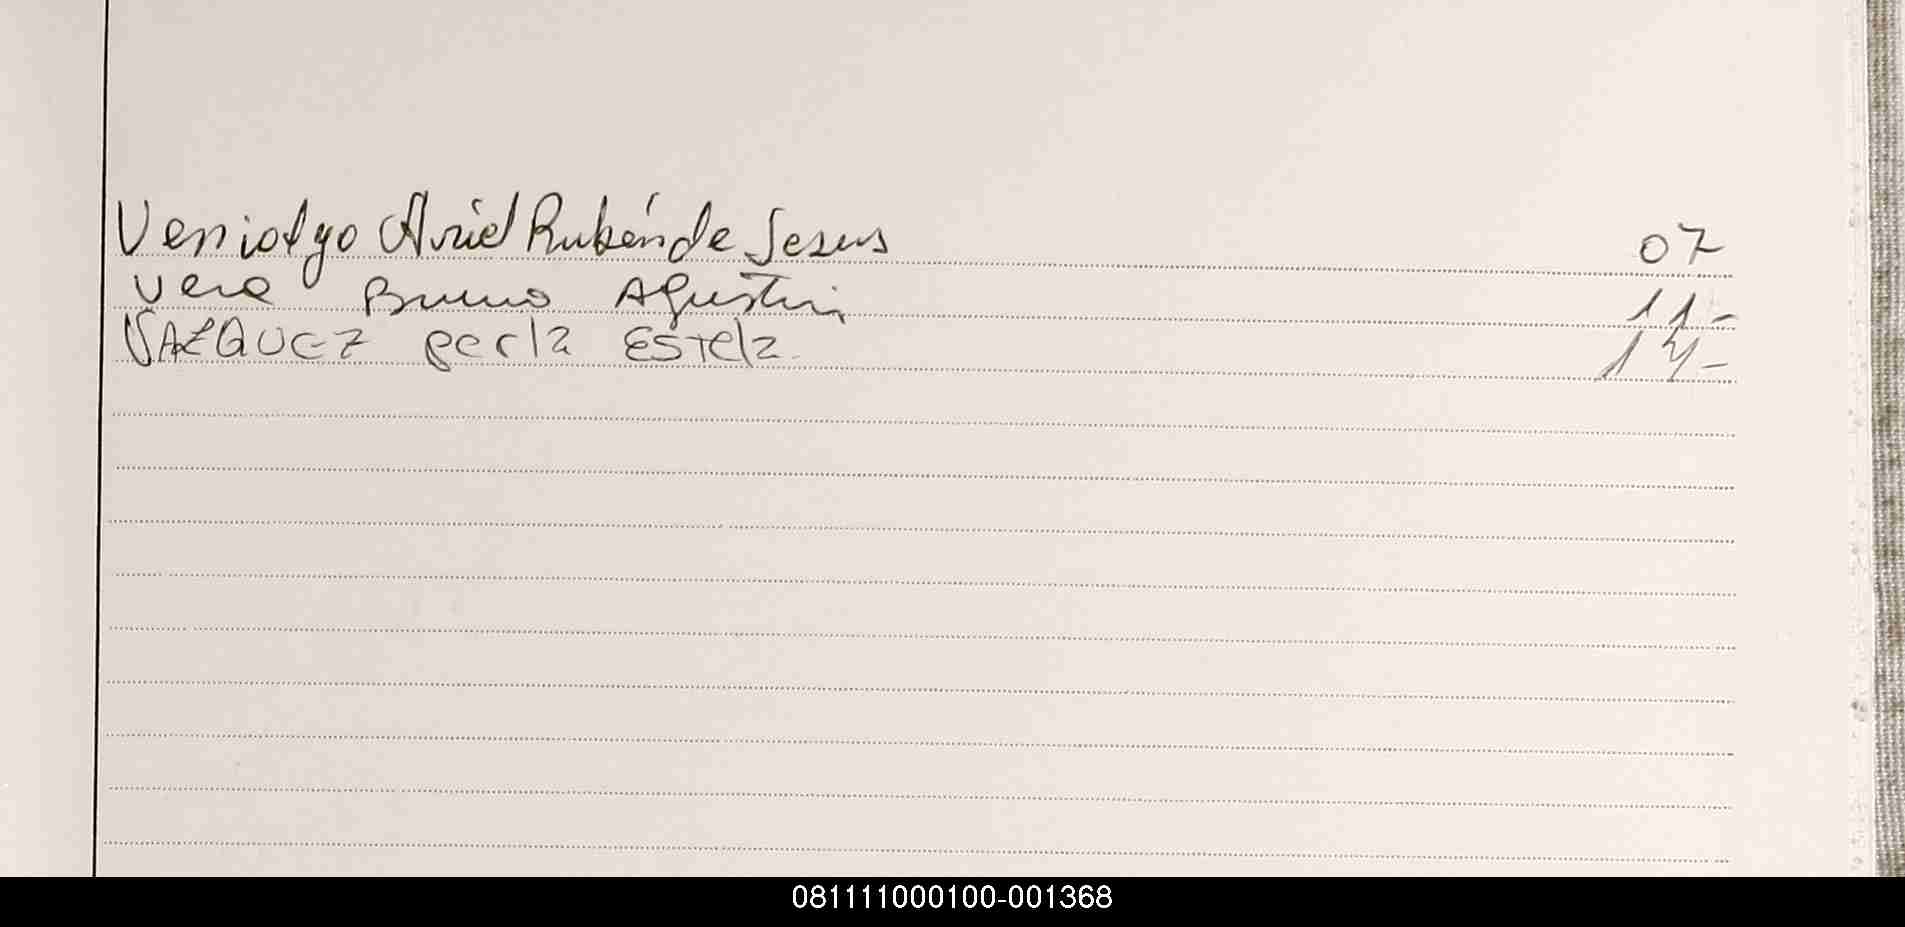 Ariel Rubén de Jesus 07
Vera Bruno Agustin 11-
VAZQUEZ perla Estela 14-
081111000100-001368